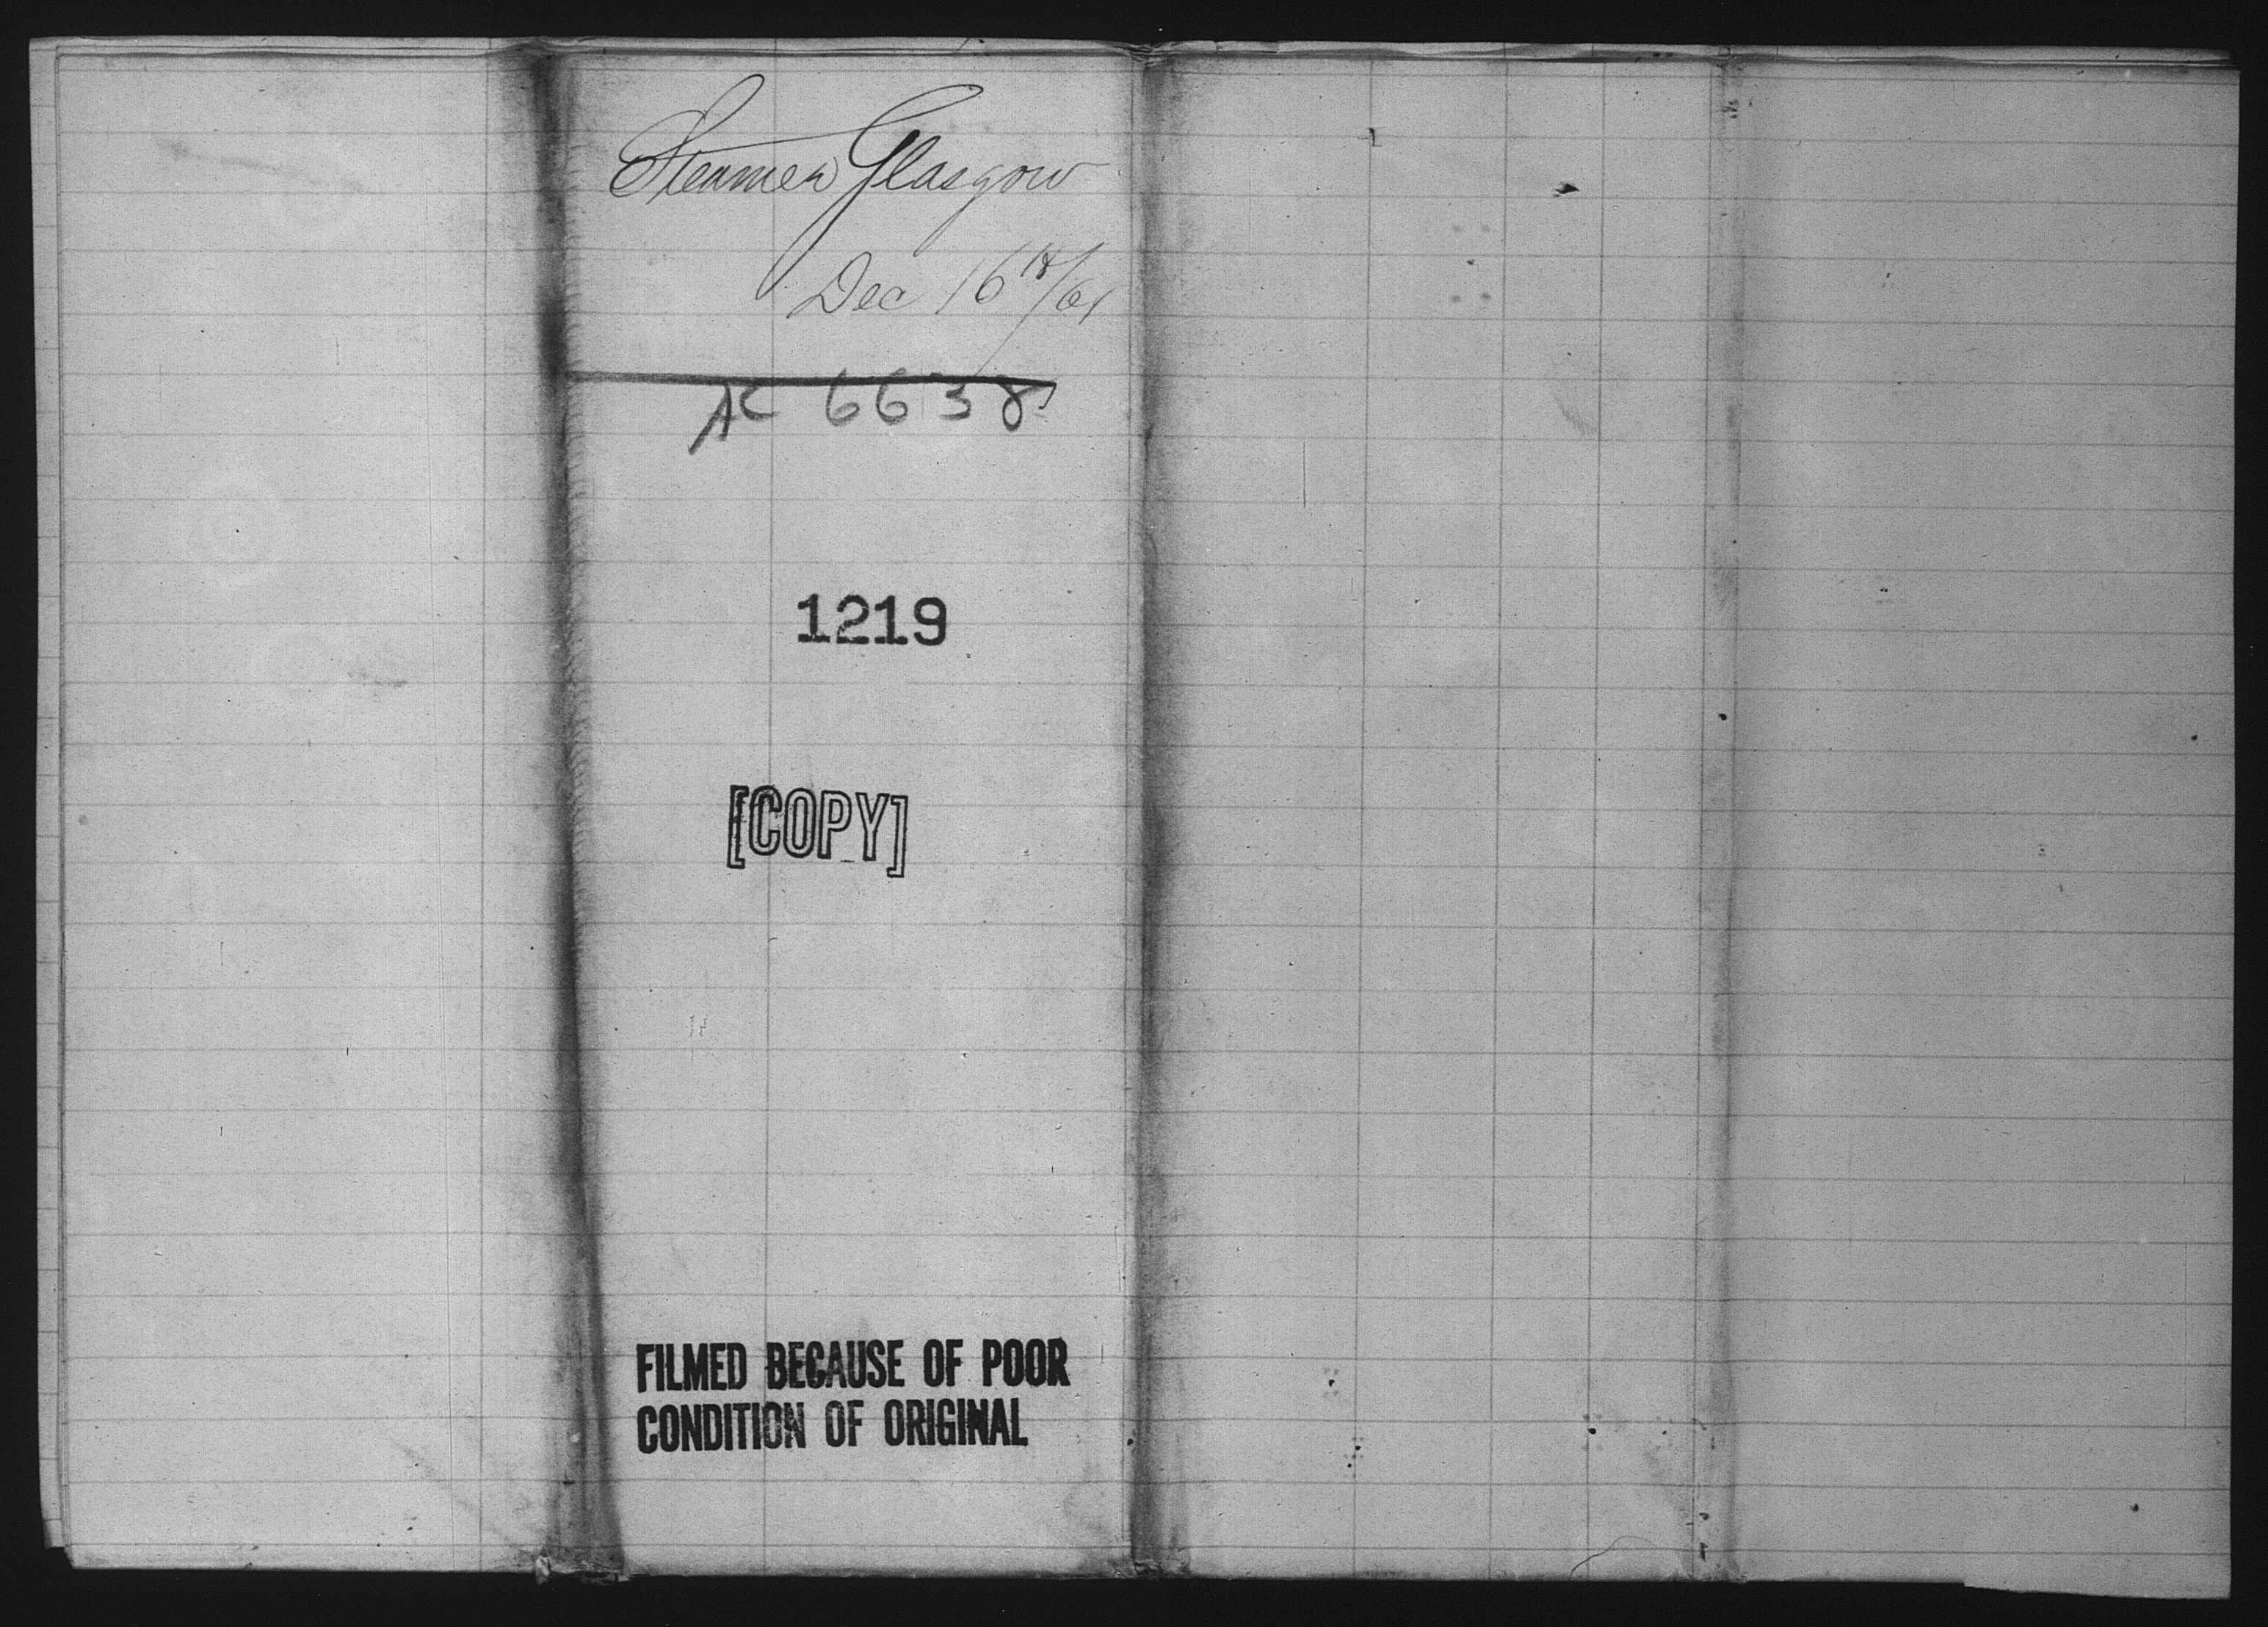 Steamer Glasgow
Dec 16 18/61
AC 6638
1219
[COPY]
FILMED BECAUSE OF POOR
CONDITION OF ORIGINAL